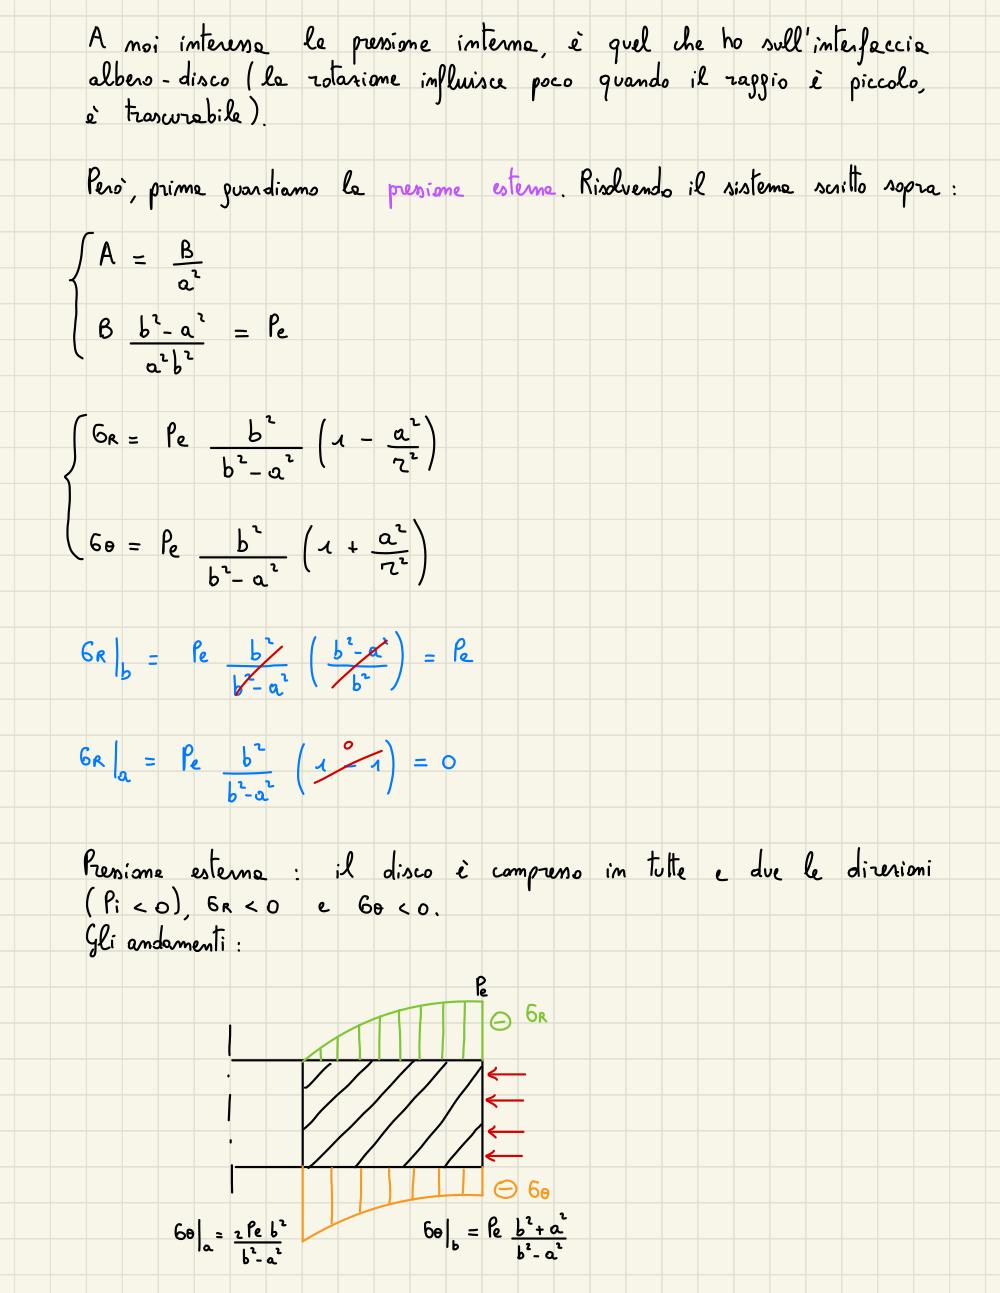 A noi interessa la pressione interna, è quel che ho sull'interfaccia
albero-disco (la rotazione influisce poco quando il raggio è piccolo,
è trascurabile).
Però, prima guardiamo la pressione esterna. Risolvendo il sistema scritto sopra:
A = B/a²
B (b²-a²)/(a²b²) = Pe
σR = Pe b²/(b²-a²) (1 - a²/r²)
σθ = Pe b²/(b²-a²) (1 + a²/r²)
σR|b = Pe b²/(b²-a²) ((b²-a²)/b²) = Pe
0
σR|a = Pe b²/(b²-a²) (1 - 1) = 0
Pressione esterna: il disco è compresso in tutte e due le direzioni
(Pi < 0), σR < 0 e σθ < 0.
Gli andamenti:
Pe
⊖ σR
⊖ σθ
σθ|a = 2 Pe b²/(b²-a²)
σθ|b = Pe (b²+a²)/(b²-a²)